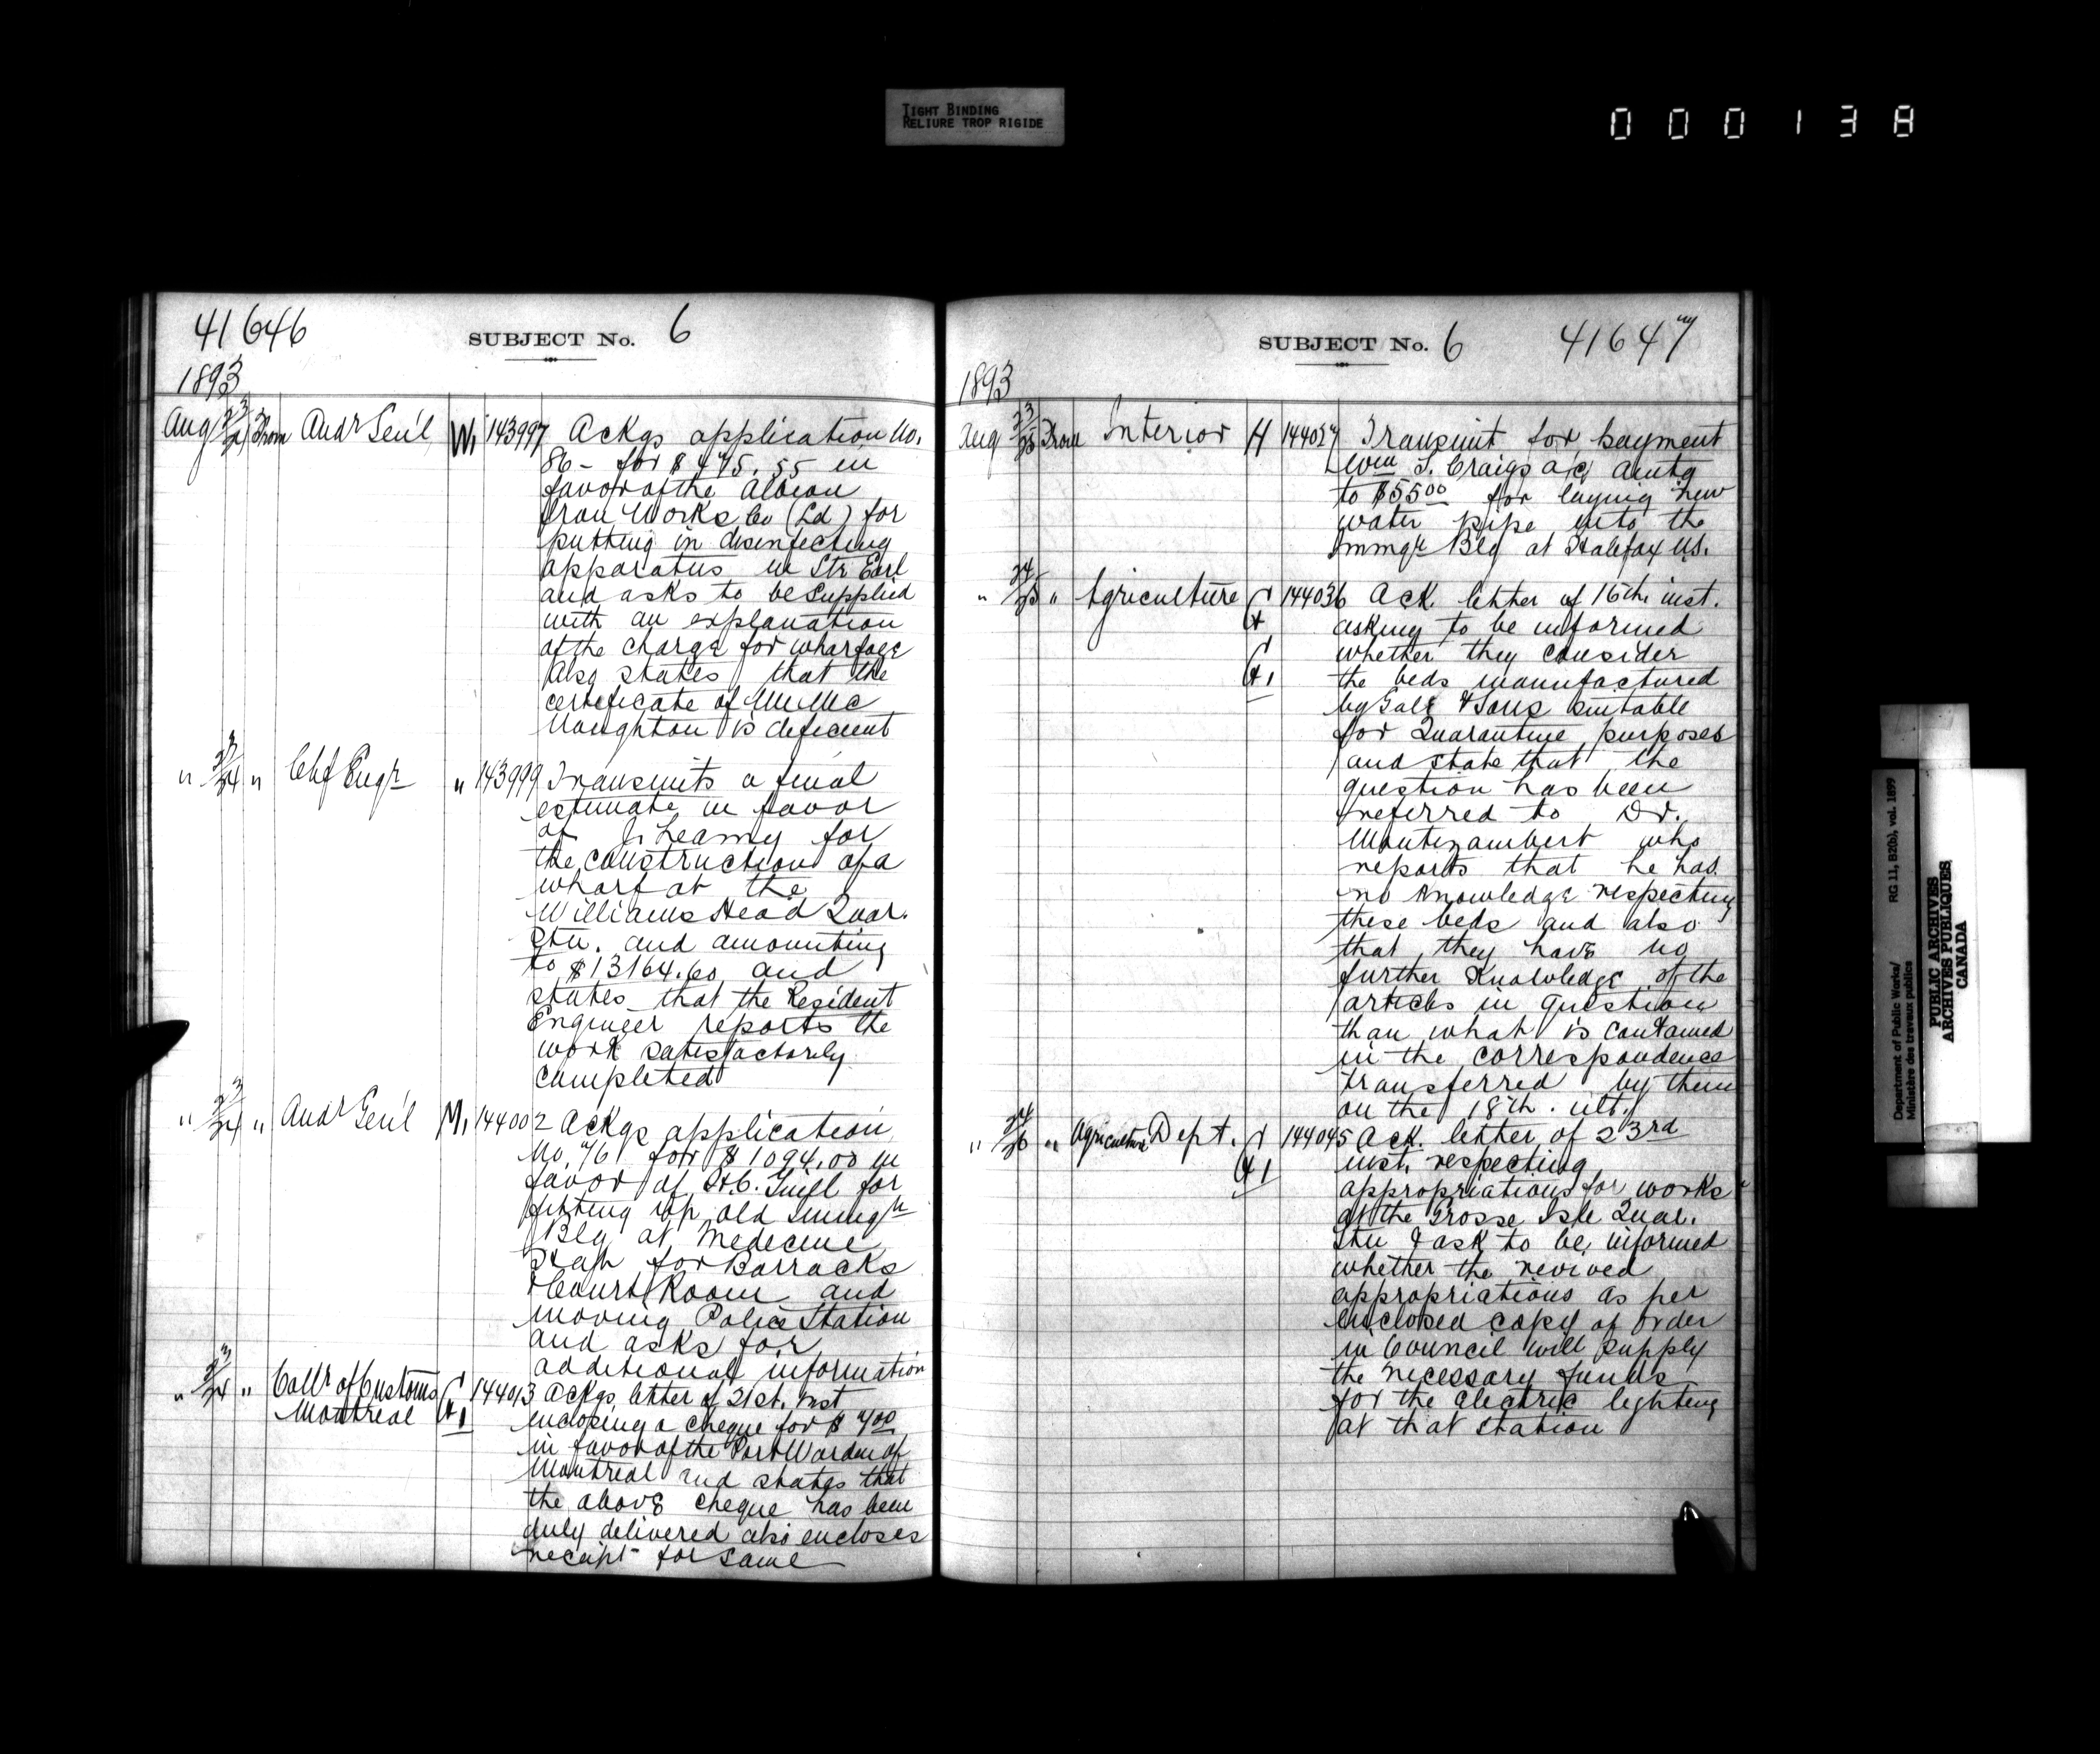 TIGHT BINDING
RELIURE TROP RIGIDE
000138
41646
SUBJECT No. 6
1893
Aug 23/24 From Audr Gen'l W. 143997 Ackgs application No.
86 - for $475.55 in
favor of the Albion
Iron Works Co (Ld) for
putting in disinfecting
apparatus in Str Earl
and asks to be supplied
with an explanation
of the charge for wharfage
Also states that the
certificate of Mr Mc
Naughton is deficient
" 23/24 " Chf Engr " 143999 Transmits a final
estimate in favor
of J. Leamy for
the construction of a
wharf at the
Williams Head Quar.
Stn. and amounting
to $13164.60 and
states that the Resident
Engineer reports the
work satisfactorily
completed
" 23/24 " Audr Gen'l M. 144002 Ackgs application
No. 76 for $1094.00 in
favor of H.C. for
fitting up old Immigtn
Blg at Medecine
Hat for Barracks
& Court Room and
moving Police Station
and asks for
additional information
" 23/24 " Collr of Customs 144013 Ackgs letter of 21st. inst
Montreal enclosing a cheque for $4.00
in favor of the Port Warden of
Montreal and states that
the above cheque has been
duly delivered also encloses
receipt for same
SUBJECT No. 6 41647
1893
Aug 23/25 From Interior H 144027 Transmit for payment
Wm S. Craigs a/c amtg
to $55.00 for laying new
water pipe into the
Immgn Blg at Halifax N.S.
" 24/25 " Agriculture 144036 Ack. letter of 16th. inst.
asking to be informed
whether they consider
the beds manufactured
by Gale & Sons suitable
for Quarantine purposes
and state that the
question has been
referred to Dr.
Montizambert who
reports that he has
no knowledge respecting
these beds and also
that they have no
further knowledge of the
articles in question
than what is contained
in the correspondence
transferred by them
on the 18th. ult.
" 24/26 " Agriculture Dept. 144045 Ack. letter of 23rd
inst. respecting
appropriations for works
at the Grosse Isle Quar.
Stn & ask to be informed
whether the revived
appropriations as per
enclosed copy of Order
in Council will supply
the necessary funds
for the electric lighting
at that station
Department of Public Works/ RG 11, B2(b), vol. 1899
Ministère des travaux publics
PUBLIC ARCHIVES
ARCHIVES PUBLIQUES
CANADA